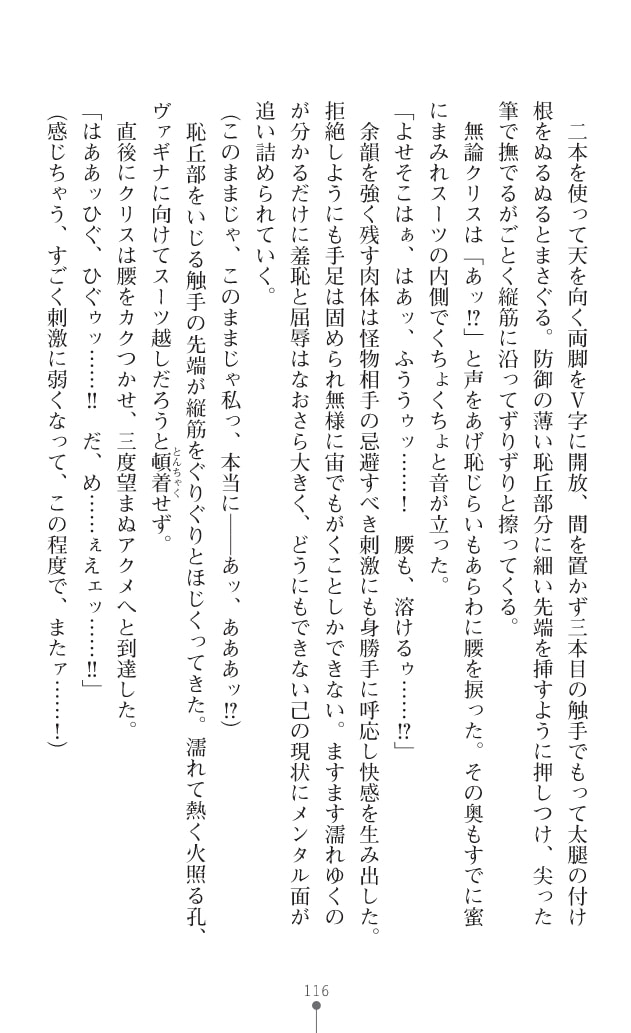 二本を使って天を向く両脚をV字に開放、間を置かず三本目の触手でもって太腿の付け
根をぬるぬるとまさぐる。防御の薄い恥丘部分に細い先端を挿すように押しつけ、尖った
筆で撫でるがごとく縦筋に沿ってずりずりと擦ってくる。
無論クリスは「あッ!?」と声をあげ恥じらいもあらわに腰を捩った。その奥もすでに蜜
にまみれスーツの内側でくちょくちょと音が立った。
「よせそこはぁ、はあッ、ふううゥッ……！　腰も、溶けるゥ……!?」
余韻を強く残す肉体は怪物相手の忌避すべき刺激にも身勝手に呼応し快感を生み出した。
拒絶しようにも手足は固められ無様に宙でもがくことしかできない。ますます濡れゆくの
が分かるだけに羞恥と屈辱はなおさら大きく、どうにもできない己の現状にメンタル面が
追い詰められていく。
(このままじゃ、このままじゃ私っ、本当に――あッ、あああッ!?)
恥丘部をいじる触手の先端が縦筋をぐりぐりとほじくってきた。濡れて熱く火照る孔、
ヴァギナに向けてスーツ越しだろうと頓着せず。
とんちゃく
直後にクリスは腰をカクつかせ、三度望まぬアクメへと到達した。
「はああッひぐ、ひぐゥッ……!!　だ、め……ぇえェッ……!!」
(感じちゃう、すごく刺激に弱くなって、この程度で、またァ……！)
116